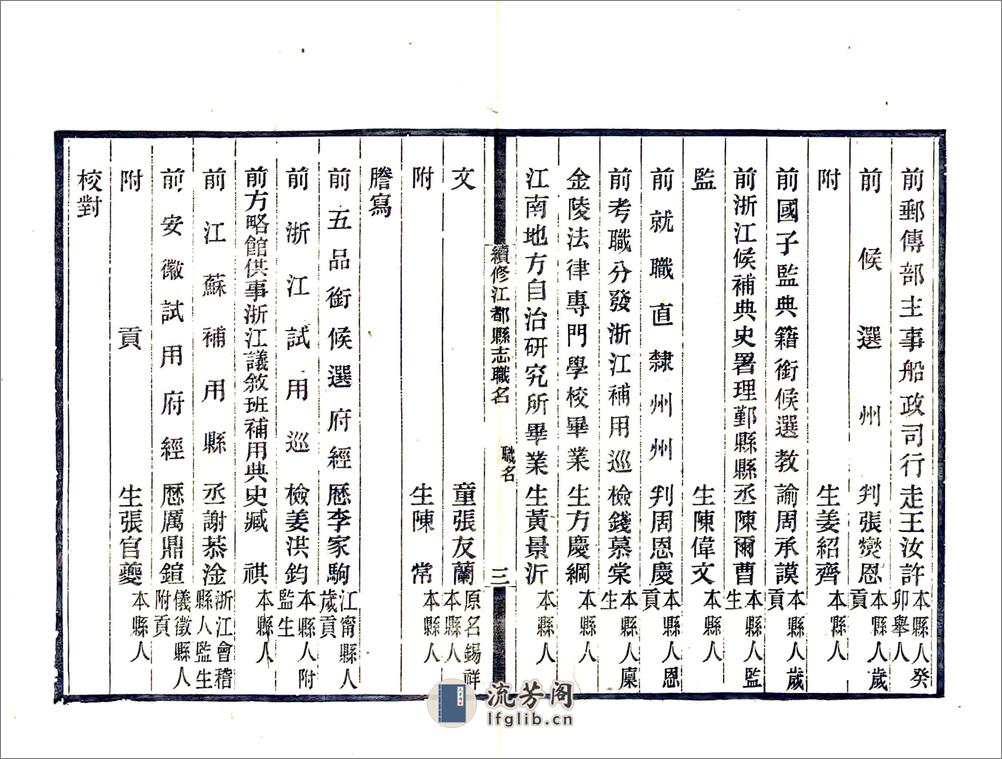 前郵傳部主事船政司行走王汝許本縣人癸卯舉人
前候選州判張爕恩本縣人歲貢
附生姜紹齊本縣人
前國子監典籍銜候選教諭周承謨本縣人歲貢
前浙江候補典史署理鄞縣縣丞陳爾曹本縣人監生
監生陳偉文
前就職直隸州州判周恩慶本縣人恩貢
前考職分發浙江補用巡檢錢慕棠本縣人廩生
金陵法律專門學校畢業生方慶綱本縣人
江南地方自治研究所畢業生黃景沂本縣人
續修江都縣志職名 職名 三
文童張友蘭原名錫祥本縣人
附生陳常本縣人
謄寫
前五品銜候選府經歷李家駒江甯縣人歲貢
前浙江試用巡檢姜洪鈞本縣人附監生
前方略館供事浙江議敘班補用典史臧祺本縣人
前江蘇補用縣丞謝菾淦浙江會稽縣人監生
前安徽試用府經歷厲鼎鍹儀徵縣人附貢
附貢生張官夔本縣人
校對
流芳阁
lfglib.cn